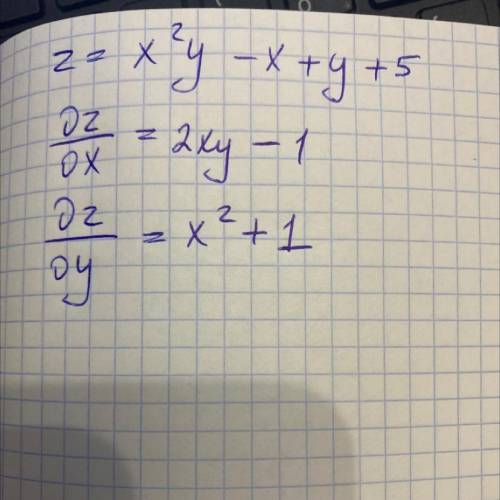 z = x²y - x + y + 5
∂z/∂x = 2xy - 1
∂z/∂y = x² + 1